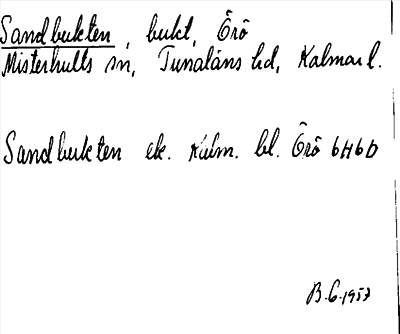 Sandbukten, bukt, Örö
Misterhults sn, Tunaläns hd, Kalmar l.
Sandbukten ek. Kalm. bl. Örö 6H6D
B.G. 1957